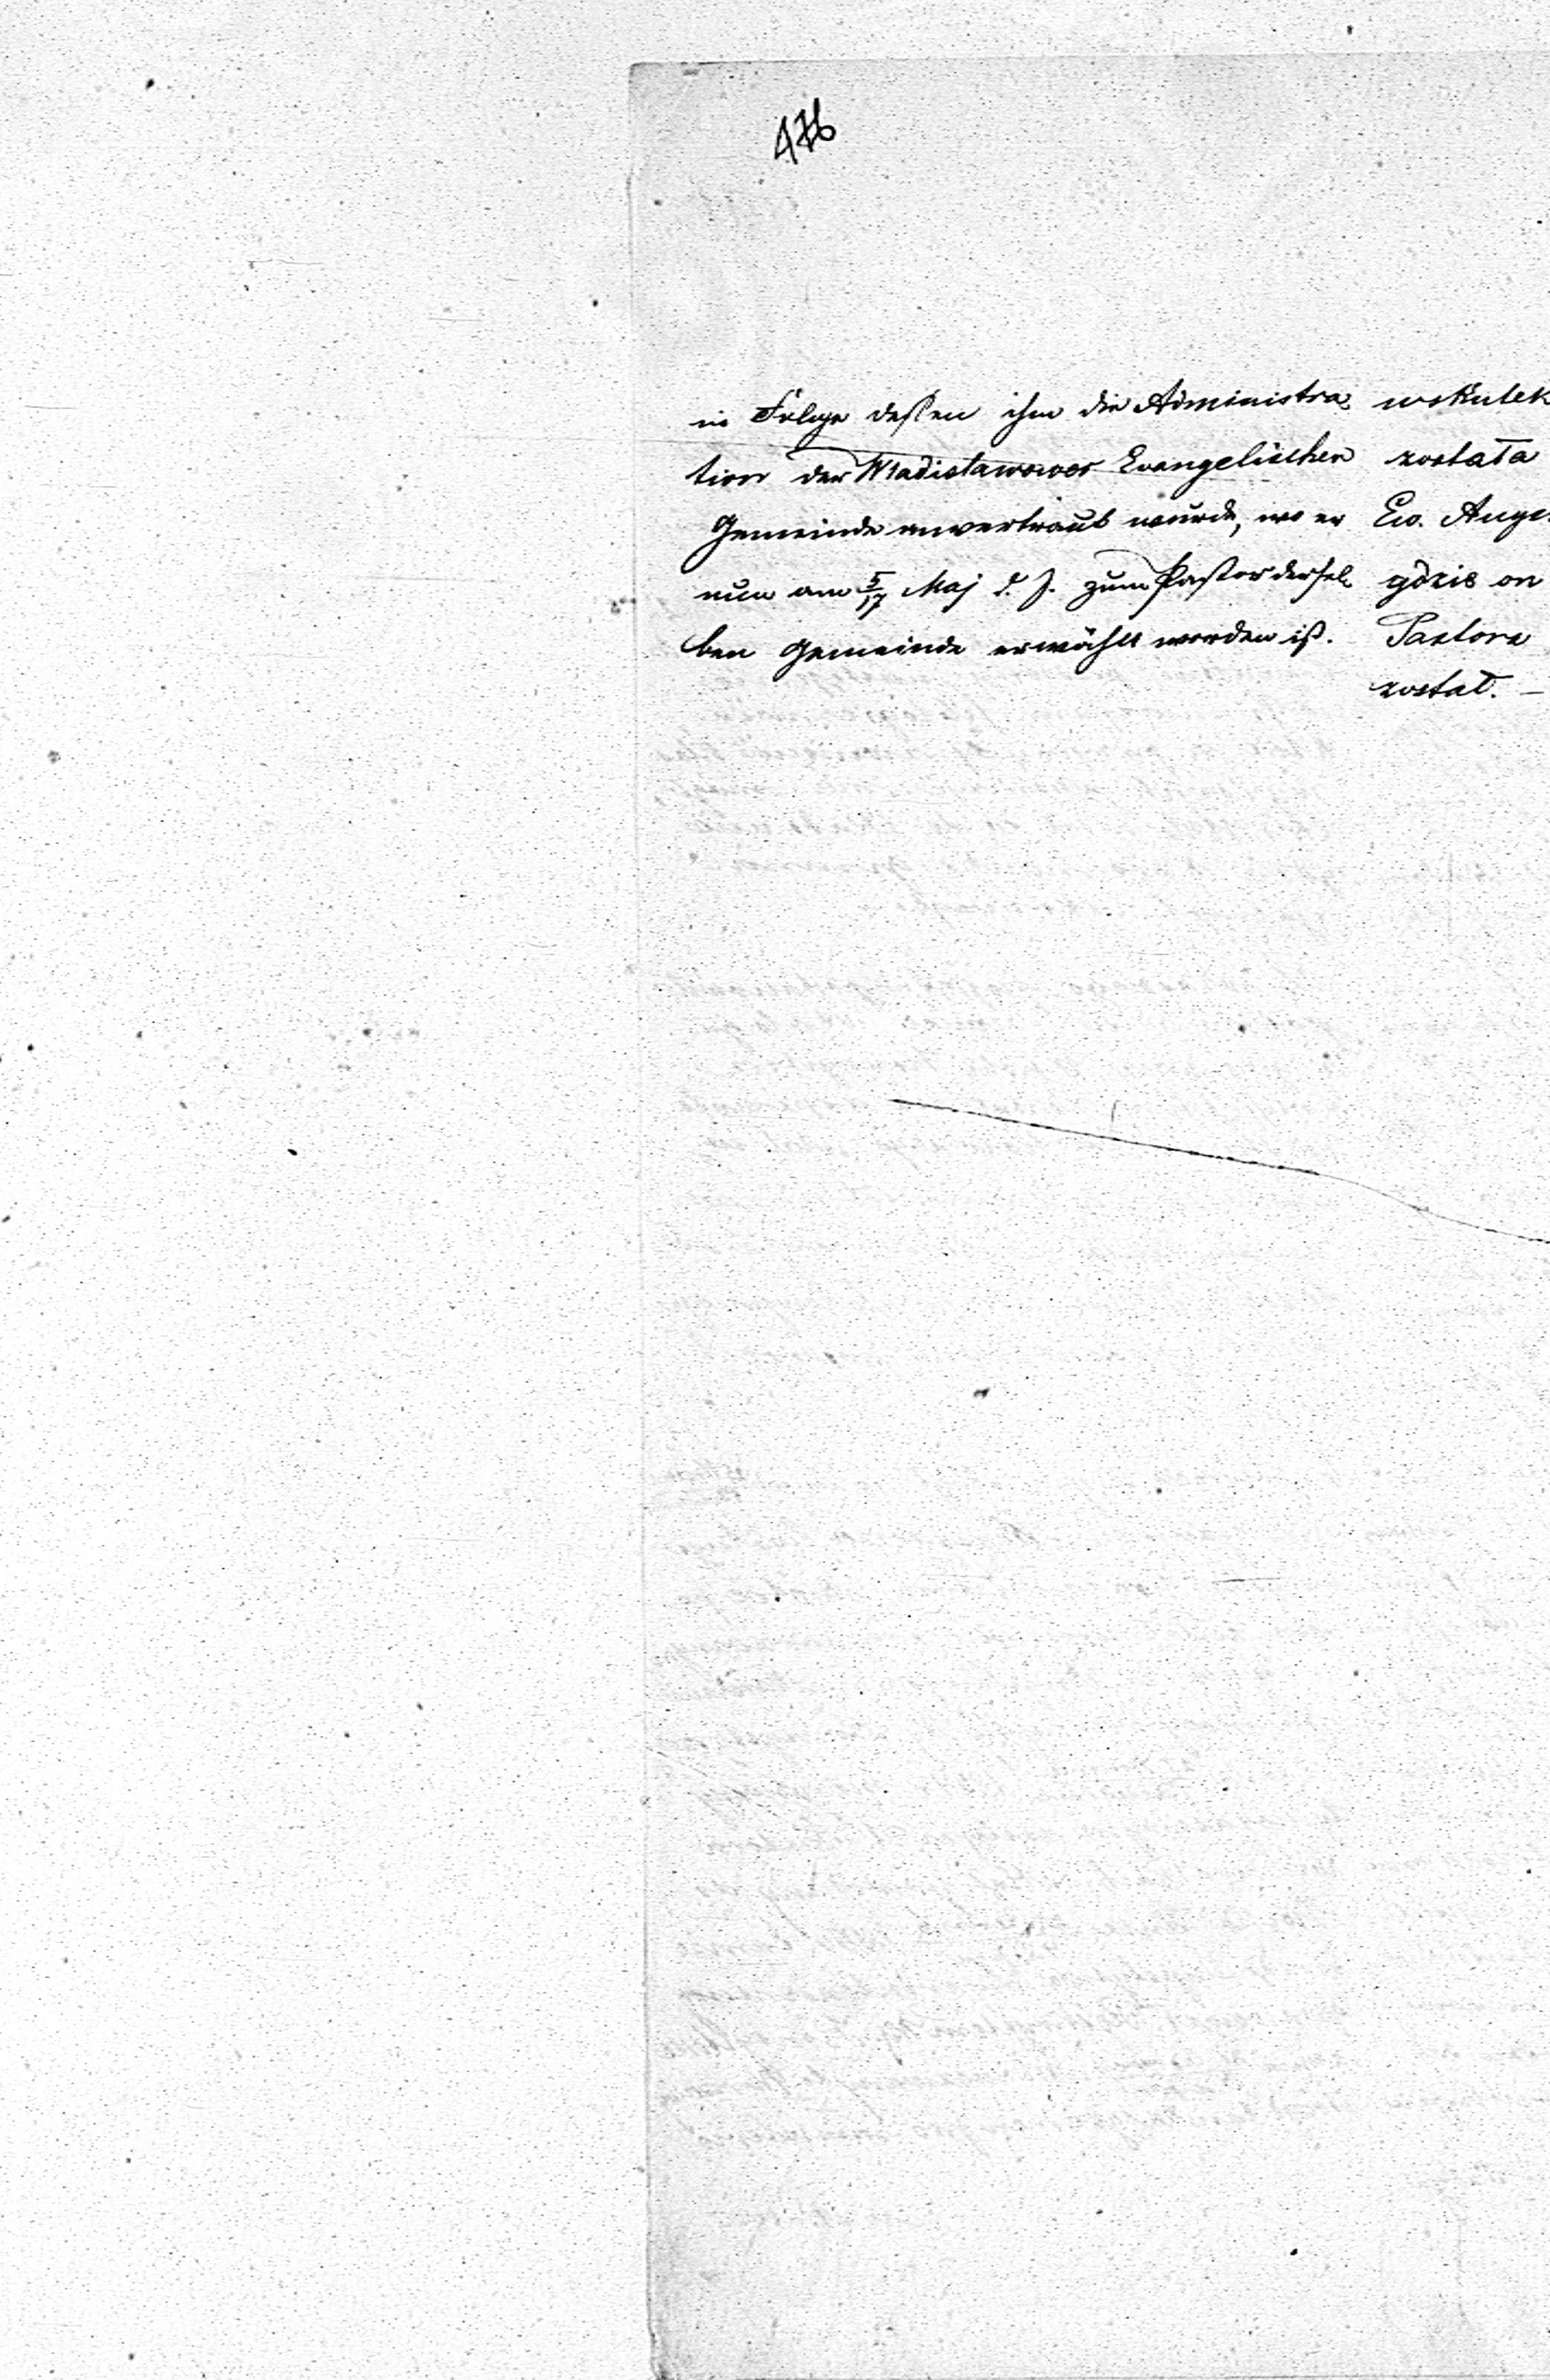 476
in Folge deßen ihm die Administra-
tion der Wladislawower Evangelischen
Gemeinde anvertraut wurde, wo er
nun am 5/17 Maj d. J. zum Pastor dersel-
ben Gemeinde erwählt worden ist.
wskutek
została
Ew. Auge.
gdzie on
Pastora
został. —